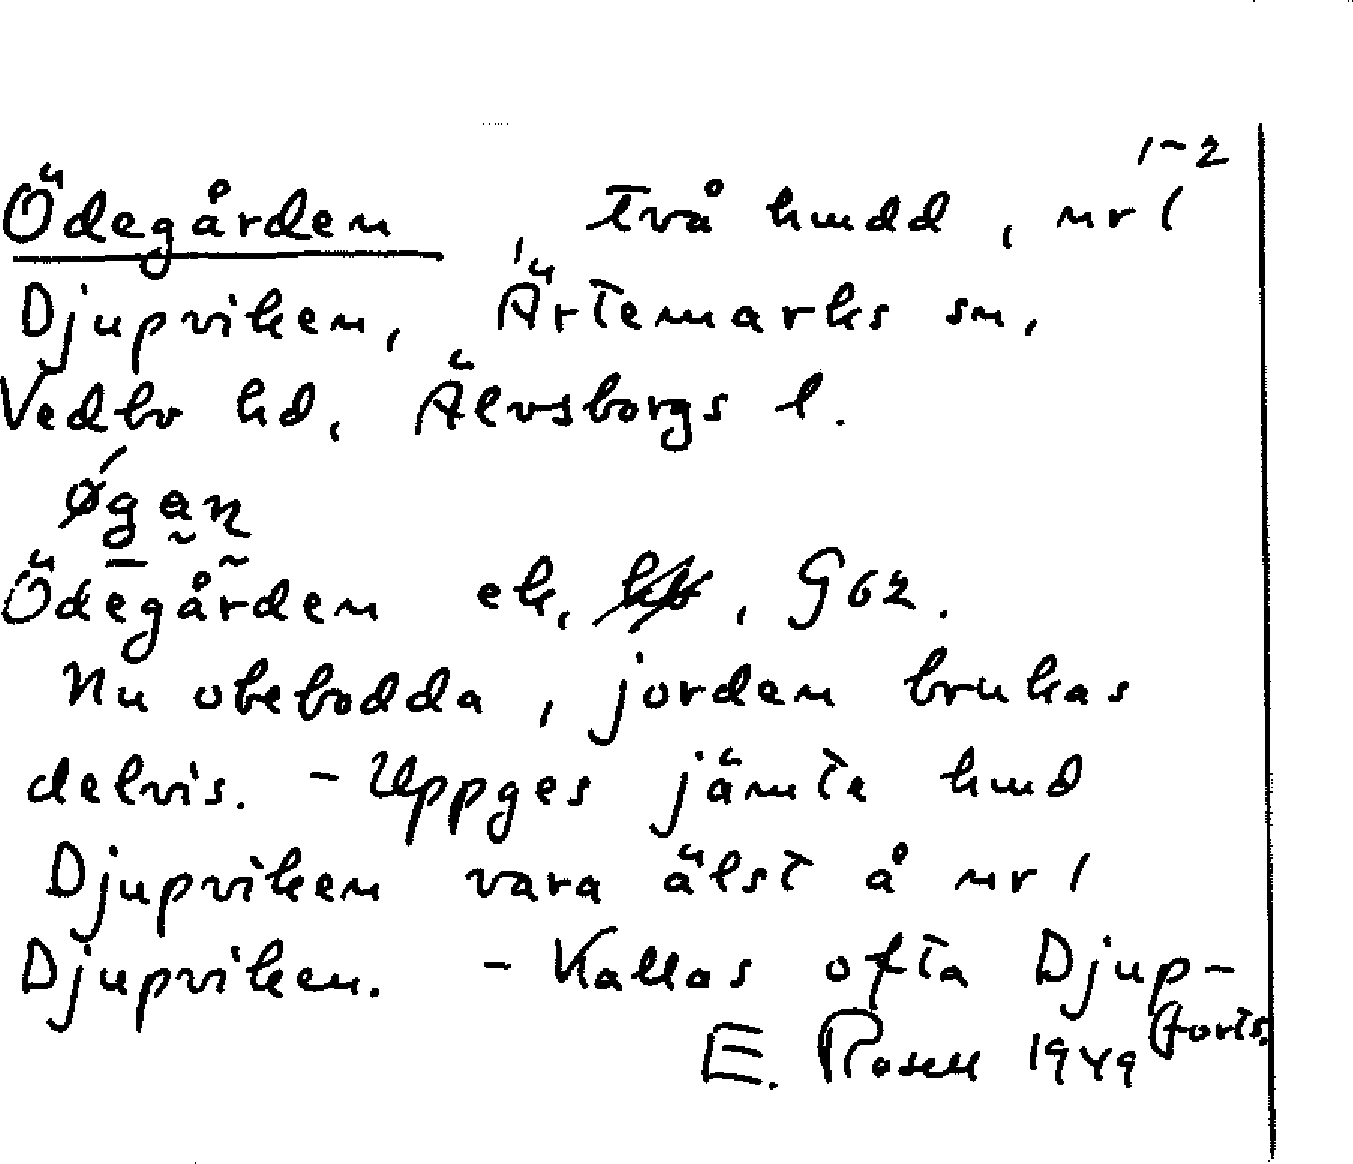 1-2
Ödegården, två hmdd, nr 1
Djupviken, Ärtemarks sn,
Vedbo hd, Älvsborgs l.
ǿgan
Ödegården ek, G 62.
Nu obebodda, jorden brukas
delvis. - Uppges jämte hmd
Djupviken vara älst å nr 1
Djupviken. - Kallas ofta Djup-
(forts.
E. Rosell 1949